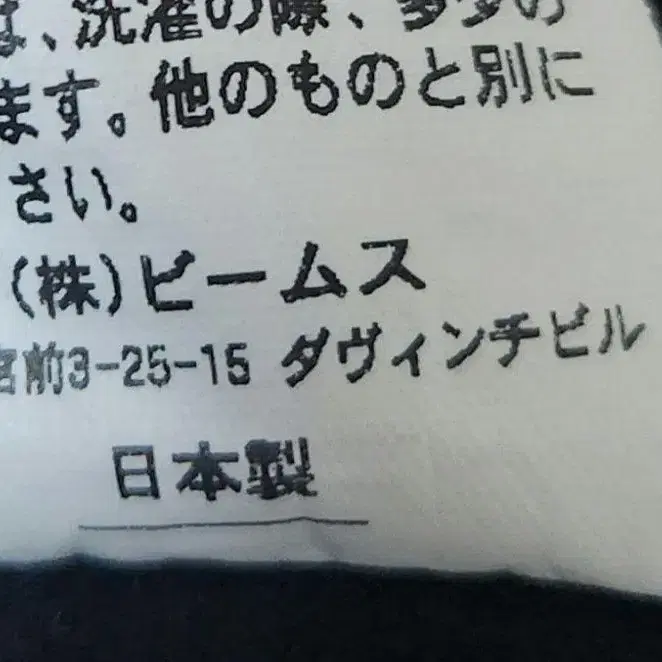 は、洗濯の際、多少の
ます。他のものと別に
さい。
(株)ビームス
宮前3-25-15 ダヴィンチビル
日本製